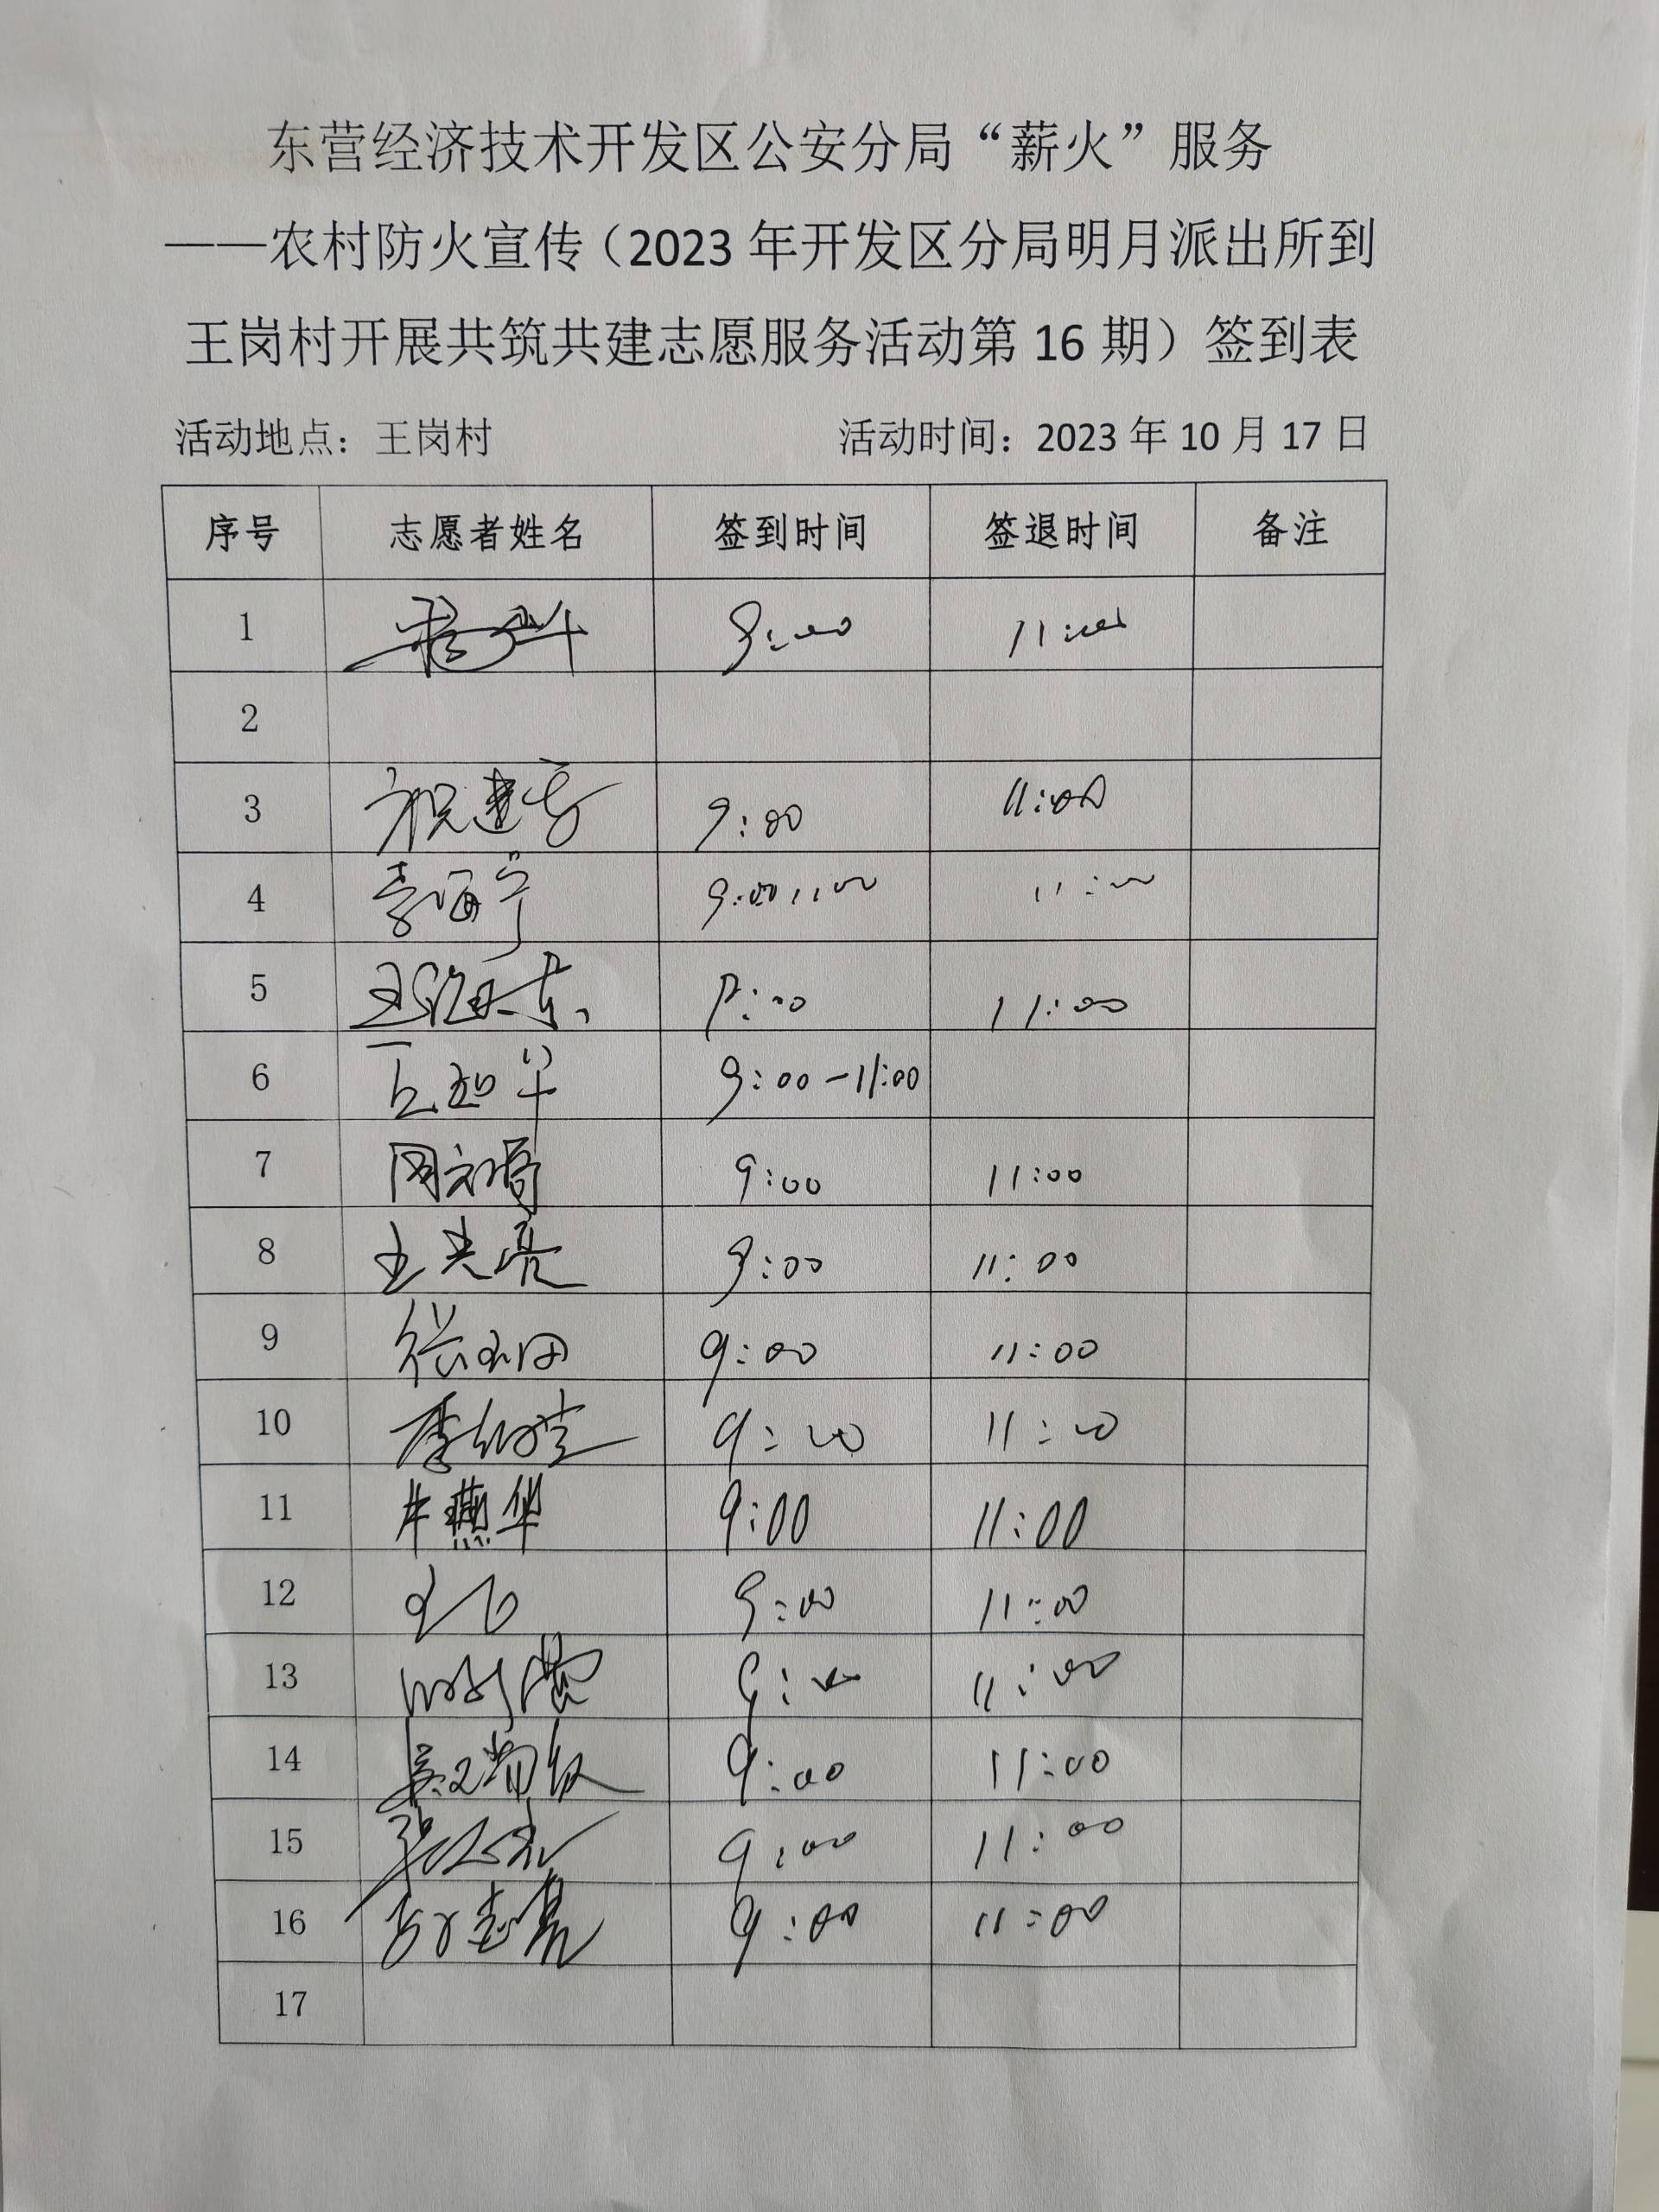 东营经济技术开发区公安分局“薪火”服务
——农村防火宣传（2023 年开发区分局明月派出所到
王岗村开展共筑共建志愿服务活动第 16 期）签到表
活动地点：王岗村 活动时间：2023 年 10 月 17 日
序号 志愿者姓名 签到时间 签退时间 备注
1 9:00 11:00
2
3 祝建 9:00 11:00
4 9:00 11:00 11:00
5 9:00 11:00
6 9:00-11:00
7 周 9:00 11:00
8 王光亮 9:00 11:00
9 张 9:00 11:00
10 李 9:00 11:00
11 牛燕华 9:00 11:00
12 9:00 11:00
13 9:00 11:00
14 9:00 11:00
15 张 9:00 11:00
16 志亮 9:00 11:00
17